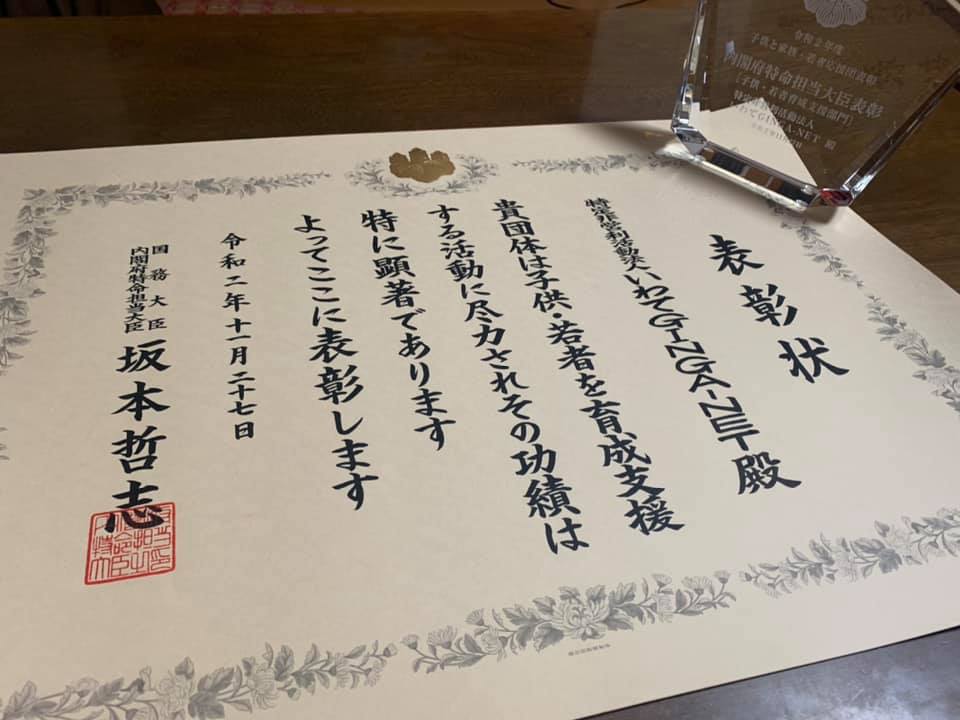 表彰状
特定非営利活動法人いわてGINGA-NET殿
貴団体は子供・若者を育成支援
する活動に尽力されその功績は
特に顕著であります
よってここに表彰します
令和二年十一月二十七日
国務大臣
内閣府特命担当大臣
坂本哲志
令和2年度
子供と家族・若者応援団表彰
内閣府特命担当大臣表彰
[子供・若者育成支援部門]